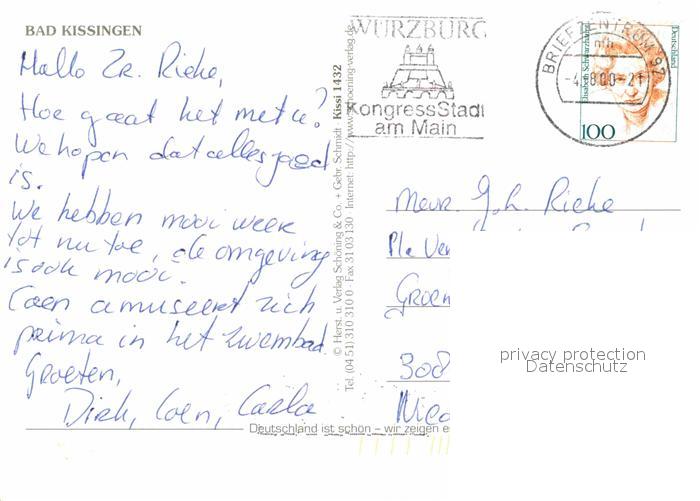 BAD KISSINGEN
Hallo Zr. Rieke,
Hoe gaat het met u?
We hopen dat alles goed
is.
We hebben mooi weer
tot nu toe, de omgeving
is ook mooi.
Coen amuseert zich
prima in het zwembad
Groeten,
Dirk, Coen, Carla
© Herst. u. Verlag Schöning & Co. + Gebr. Schmidt Kissi 1432
Tel. (04 51) 310 310 0 · Fax 31 03 130 · Internet: http://www.schoening-verlag.de
Deutschland ist schön – wir zeigen e
WÜRZBURG
KongressStadt
am Main
BRIEFZENTRUM 97
mh
-4.-8.00-21
Deutschland
Elisabeth Schwarzhaupt
100
Mevr. Joh. Rieke
Pla Ver
Groen
308
privacy protection
Datenschutz